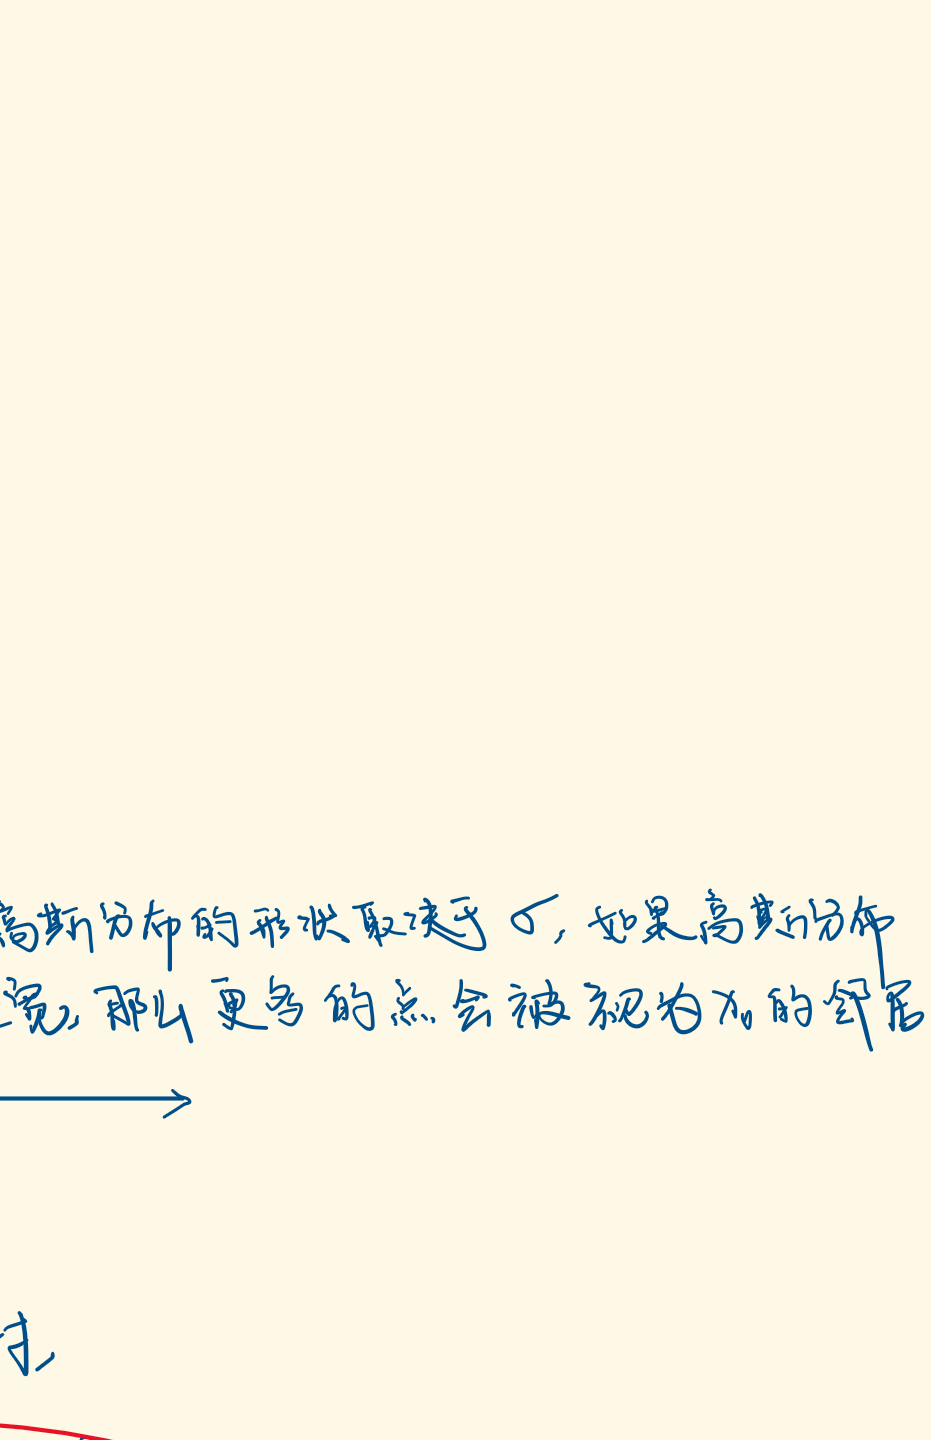 高斯分布的形状取决于 σ, 如果高斯分布
宽, 那么更多的点会被视为 x₀ 的邻居